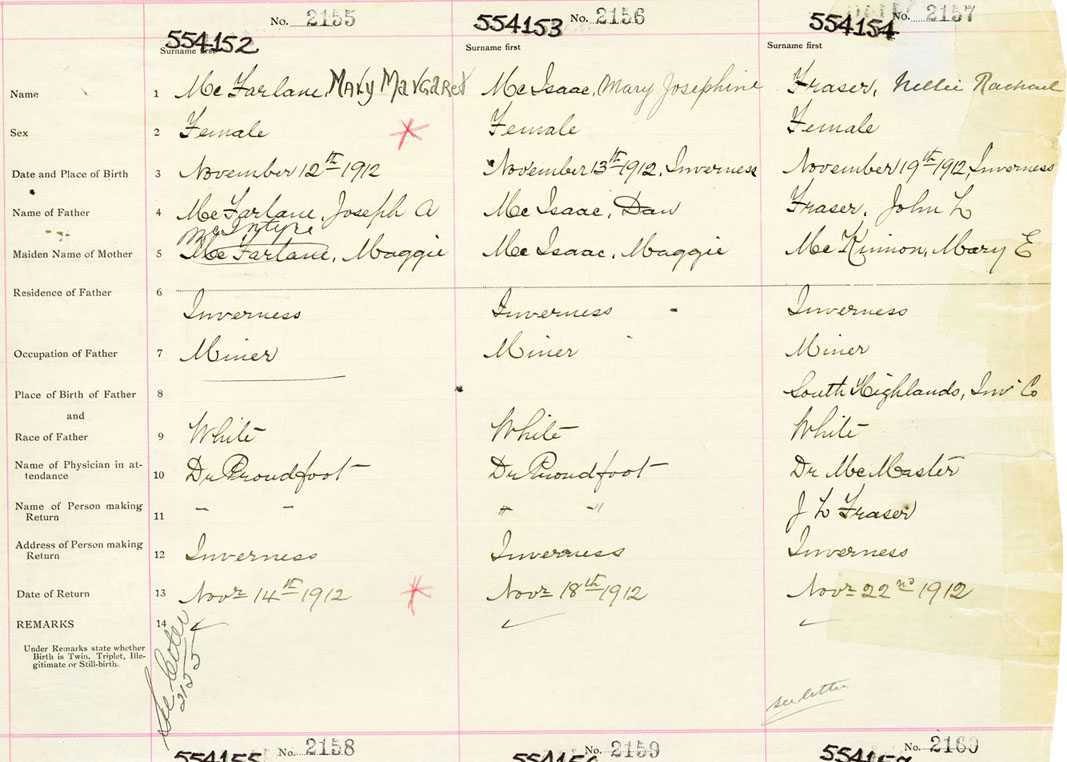 No. 2155 No. 2156 No. 2157
554152 554153 554154
Surname first Surname first Surname first
Name 1 McFarlane, Mary Margaret McIsaac, Mary Josephine Fraser, Nellie Rachael
Sex 2 Female Female Female
Date and Place of Birth 3 November 12th 1912 November 13th 1912, Inverness November 19th 1912 Inverness
Name of Father 4 McFarlane, Joseph A McIsaac, Dan Fraser, John L
McIntyre
Maiden Name of Mother 5 McFarlane, Maggie McIsaac, Maggie McKinnon, Mary E
Residence of Father 6 Inverness Inverness Inverness
Occupation of Father 7 Miner Miner Miner
Place of Birth of Father 8 South Highlands, Inv Co
and
Race of Father 9 White White White
Name of Physician in at-
tendance 10 Dr Proudfoot Dr Proudfoot Dr McMaster
Name of Person making
Return 11 " " " " J L Fraser
Address of Person making
Return 12 Inverness Inverness Inverness
Date of Return 13 Novr 14th 1912 Novr 18th 1912 Novr 22nd 1912
REMARKS 14
Under Remarks state whether
Birth is Twin, Triplet, Ille-
gitimate or Still-birth.
See letter
2155
see letter
No. 2158 No. 2159 No. 2160
554155 554156 554157